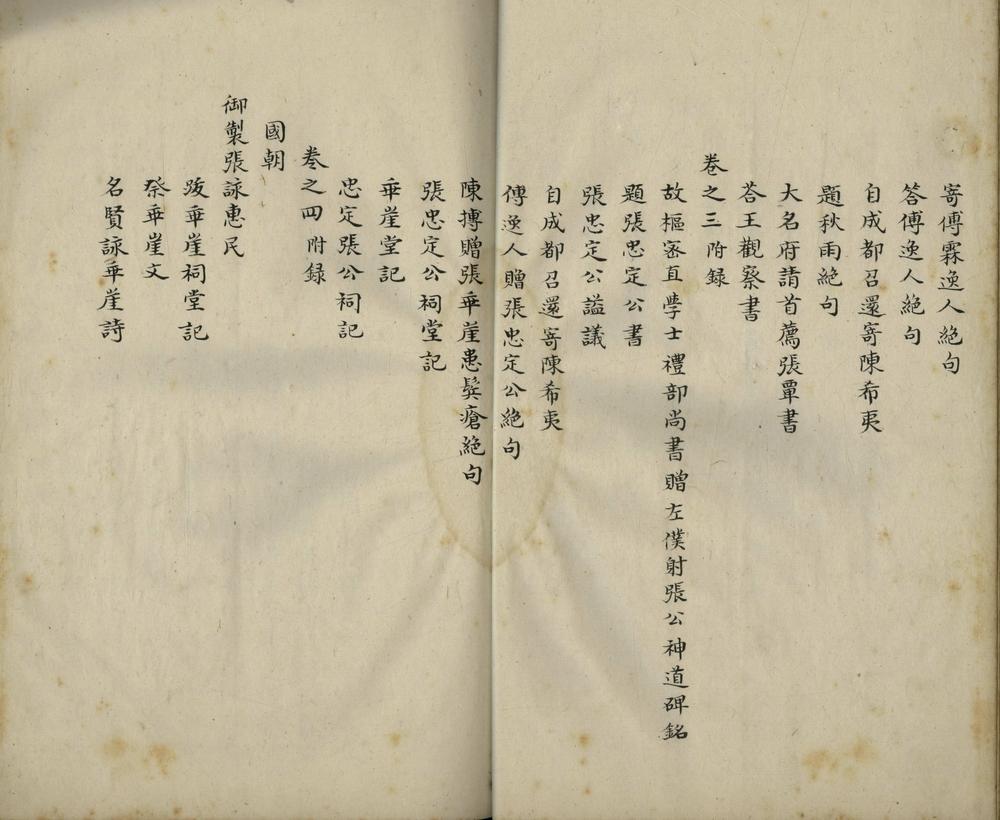 寄傅霖逸人絕句
答傅逸人絕句
自成都召還寄陳希夷
題秋雨絕句
大名府請首薦張覃書
荅王觀察書
卷之三附録
故樞密直學士禮部尚書贈左僕射張公神道碑銘
題張忠定公書
張忠定公謚議
自成都召還寄陳希夷
傅逸人贈張忠定公絕句
陳摶贈張乖崖患鬂瘡絕句
張忠定公祠堂記
乖崖堂記
忠定張公祠記
卷之四附録
國朝
御製張詠惠民
跋乖崖祠堂記
祭乖崖文
名賢詠乖崖詩